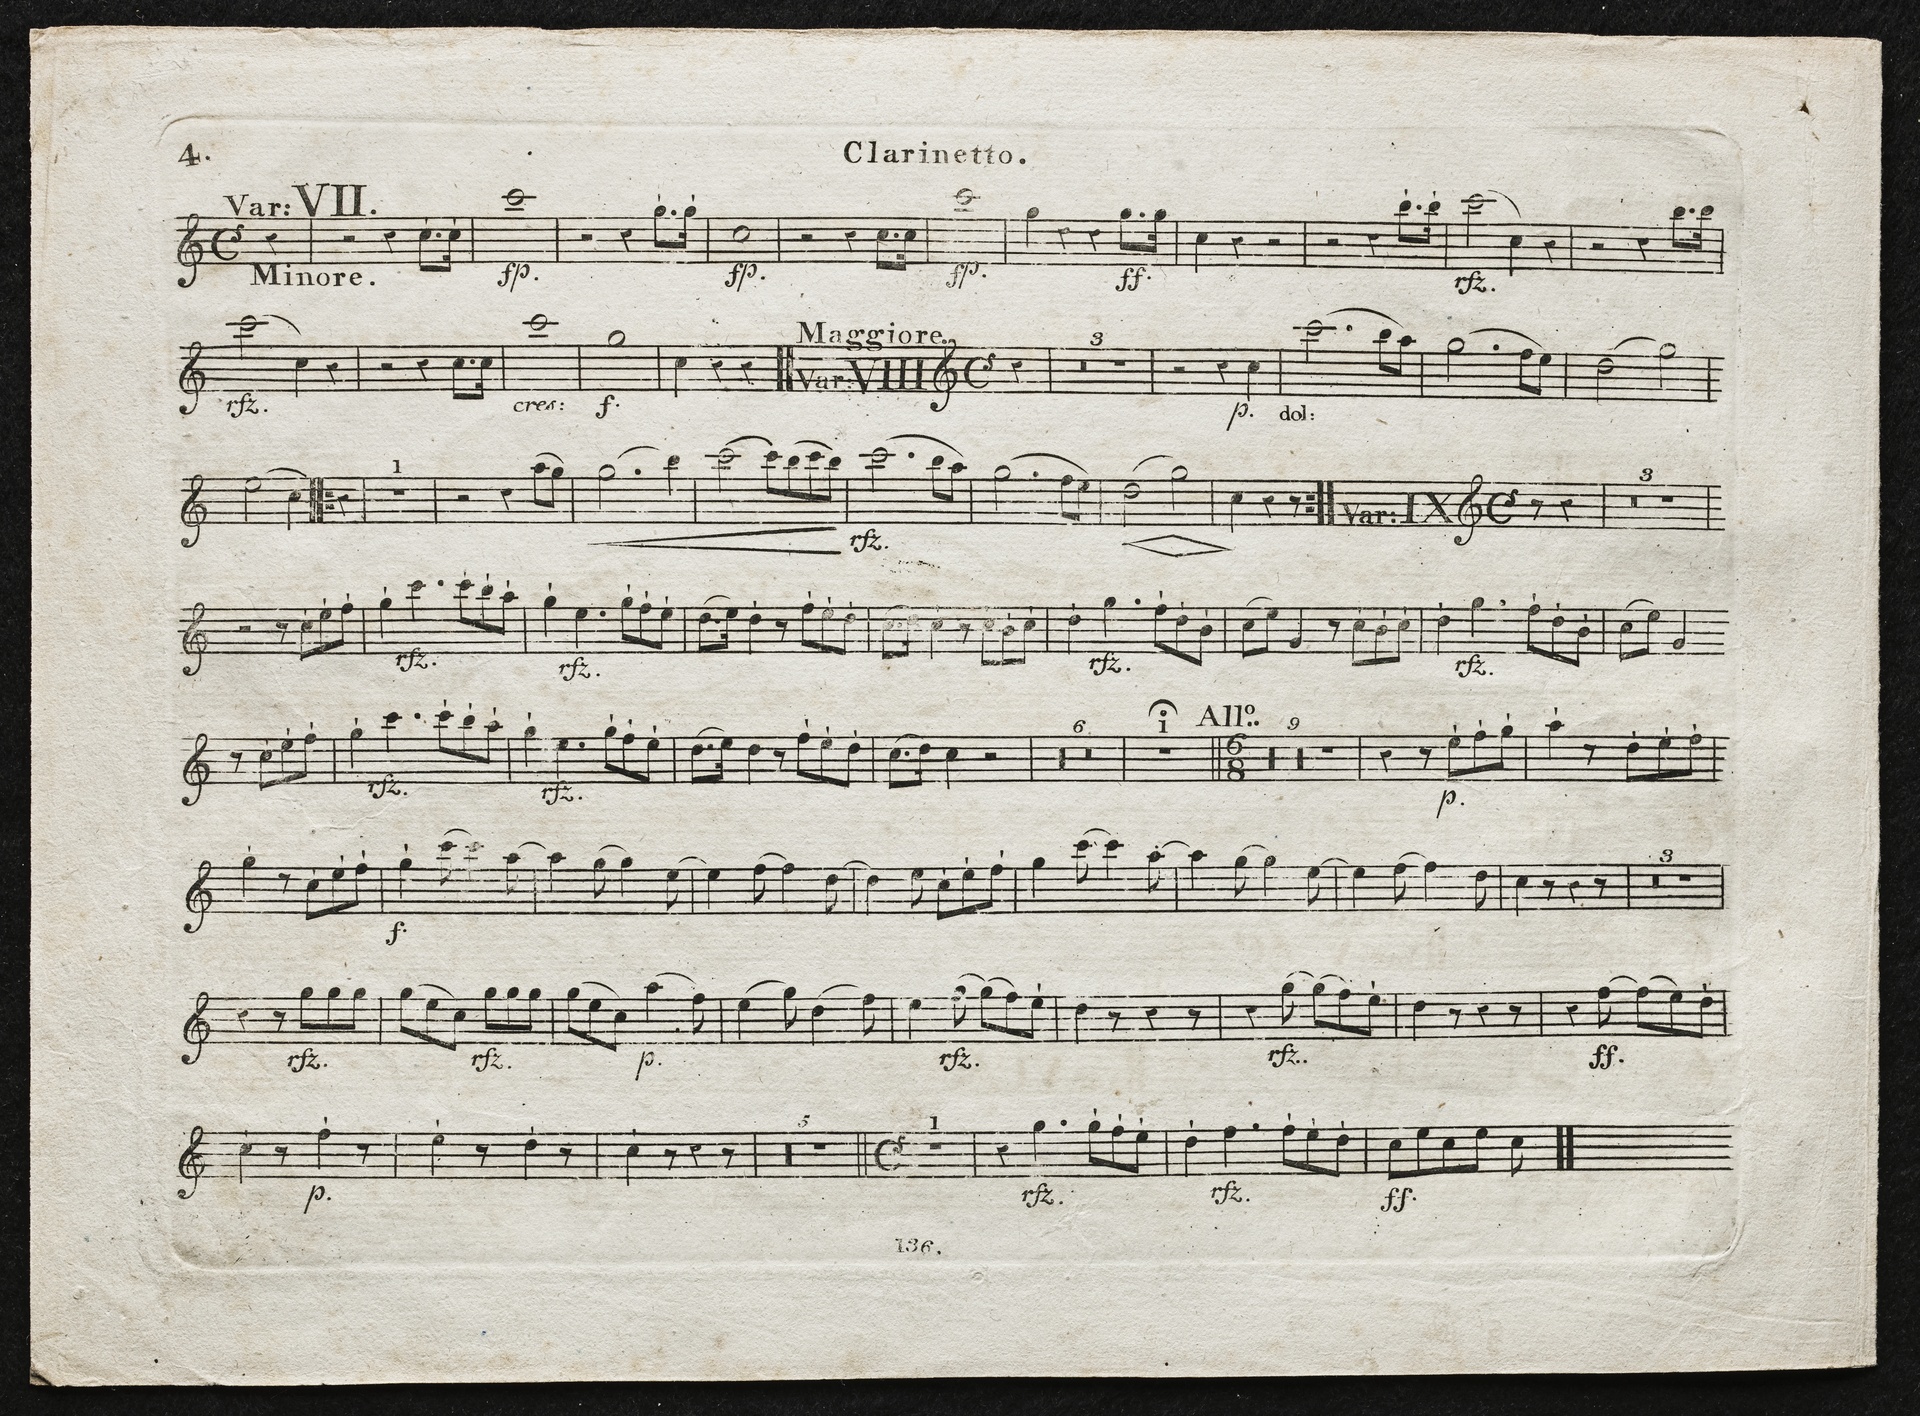 4.
Clarinetto.
Var: VII.
Minore.
fp. fp. fp. ff. rfz.
Maggiore.
Var: VIII
3
rfz. cres: f. p. dol:
1
Var: IX
3
rfz.
rfz. rfz. rfz. rfz.
6 1 All.o 9
6
8
rfz. rfz. p.
3
f.
rfz. rfz. p. rfz. rfz. ff.
5 1
p. rfz. rfz. ff.
136.